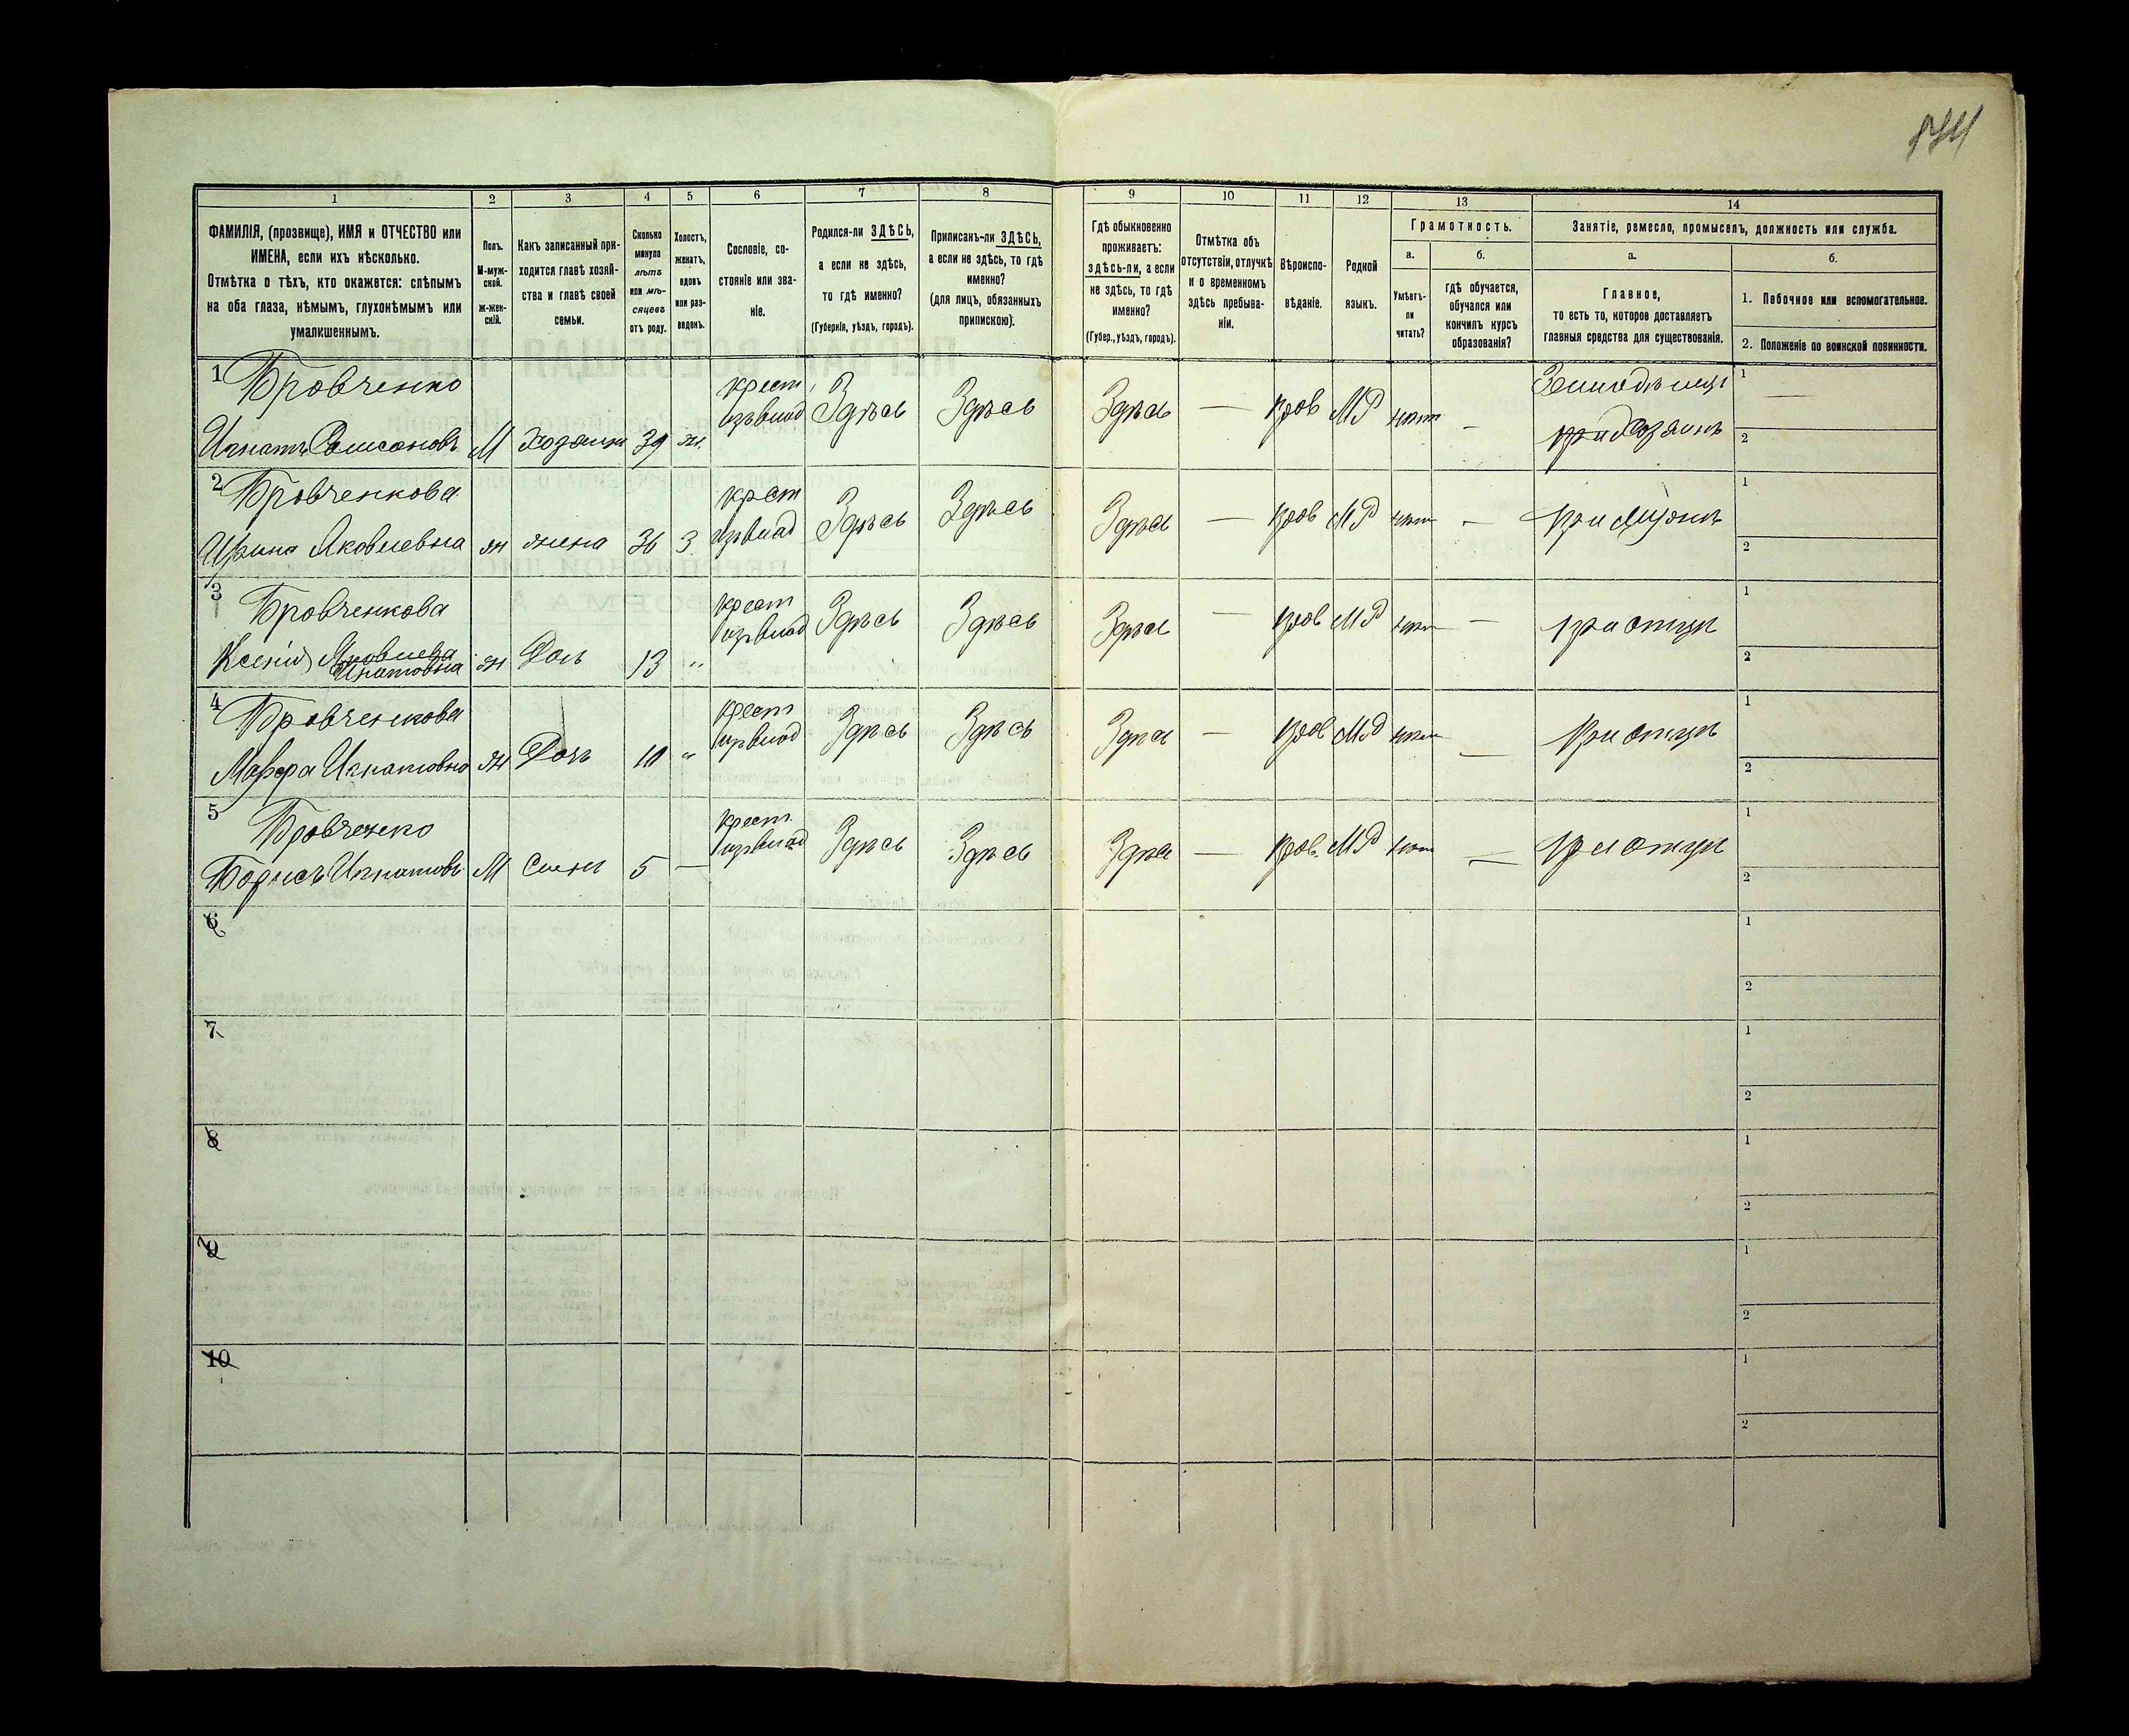 1 2 3 4 5 6 7 8 9 10 11 12 13 14
ФАМИЛІЯ, (прозвище), ИМЯ и ОТЧЕСТВО или
ИМЕНА, если ихъ нѣсколько.
Отмѣтка о тѣхъ, кто окажется: слѣпымъ
на оба глаза, нѣмымъ, глухонѣмымъ или
умалишеннымъ.
Полъ.
М-муж-
ской.
Ж-жен-
скій.
Какъ записанный при-
ходится главѣ хозяй-
ства и главѣ своей
семьи.
Сколько
минуло
лѣтъ
или мѣ-
сяцевъ
отъ роду.
Холостъ,
женатъ,
вдовъ
или раз-
веденъ.
Сословіе, со-
стояніе или зва-
ніе.
Родился-ли ЗДѢСЬ,
а если не здѣсь,
то гдѣ именно?
(Губернія, уѣздъ, городъ).
Приписанъ-ли ЗДѢСЬ,
а если не здѣсь, то гдѣ
именно?
(для лицъ, обязанныхъ
припискою).
Гдѣ обыкновенно
проживаетъ:
здѣсь-ли, а если
не здѣсь, то гдѣ
именно?
(Губер., уѣздъ, городъ).
Отмѣтка объ
отсутствіи, отлучкѣ
и о временномъ
здѣсь пребыва-
ніи.
Вѣроиспо-
вѣданіе.
Родной
языкъ.
Грамотность.
а.
Умѣетъ-
ли
читать?
б.
гдѣ обучается,
обучался или
кончилъ курсъ
образованія?
Занятіе, ремесло, промыселъ, должность или служба.
а.
Главное,
то есть то, которое доставляетъ
главныя средства для существованія.
б.
1. Побочное или вспомогательное.
2. Положеніе по воинской повинности.
1 Бровченко крест 1 —
Игнатъ М Хозяинъ 39 ж. Здѣсь Здѣсь Здѣсь — прав МР нѣт — Хозяинъ 2
2 Бровченкова крест 1
Ирина Яковлевна ж жена 36 З. Здѣсь Здѣсь Здѣсь — прав МР нѣт — 2
3 Бровченкова крест 1
Ксенія Яковлева Игнатовна ж Дочь 13 " Здѣсь Здѣсь Здѣсь — прав МР нѣт — при отцѣ 2
4 Бровченкова крест 1
Марфа Игнатовна ж Дочь 10 " Здѣсь Здѣсь Здѣсь — прав МР нѣт — при отцѣ 2
5 Бровченко крест 1
Борисъ Игнатовъ М Сынъ 5 — Здѣсь Здѣсь Здѣсь — прав. МР нѣт — при отцѣ 2
6 1
2
7 1
2
8 1
2
9 1
2
10 1
2